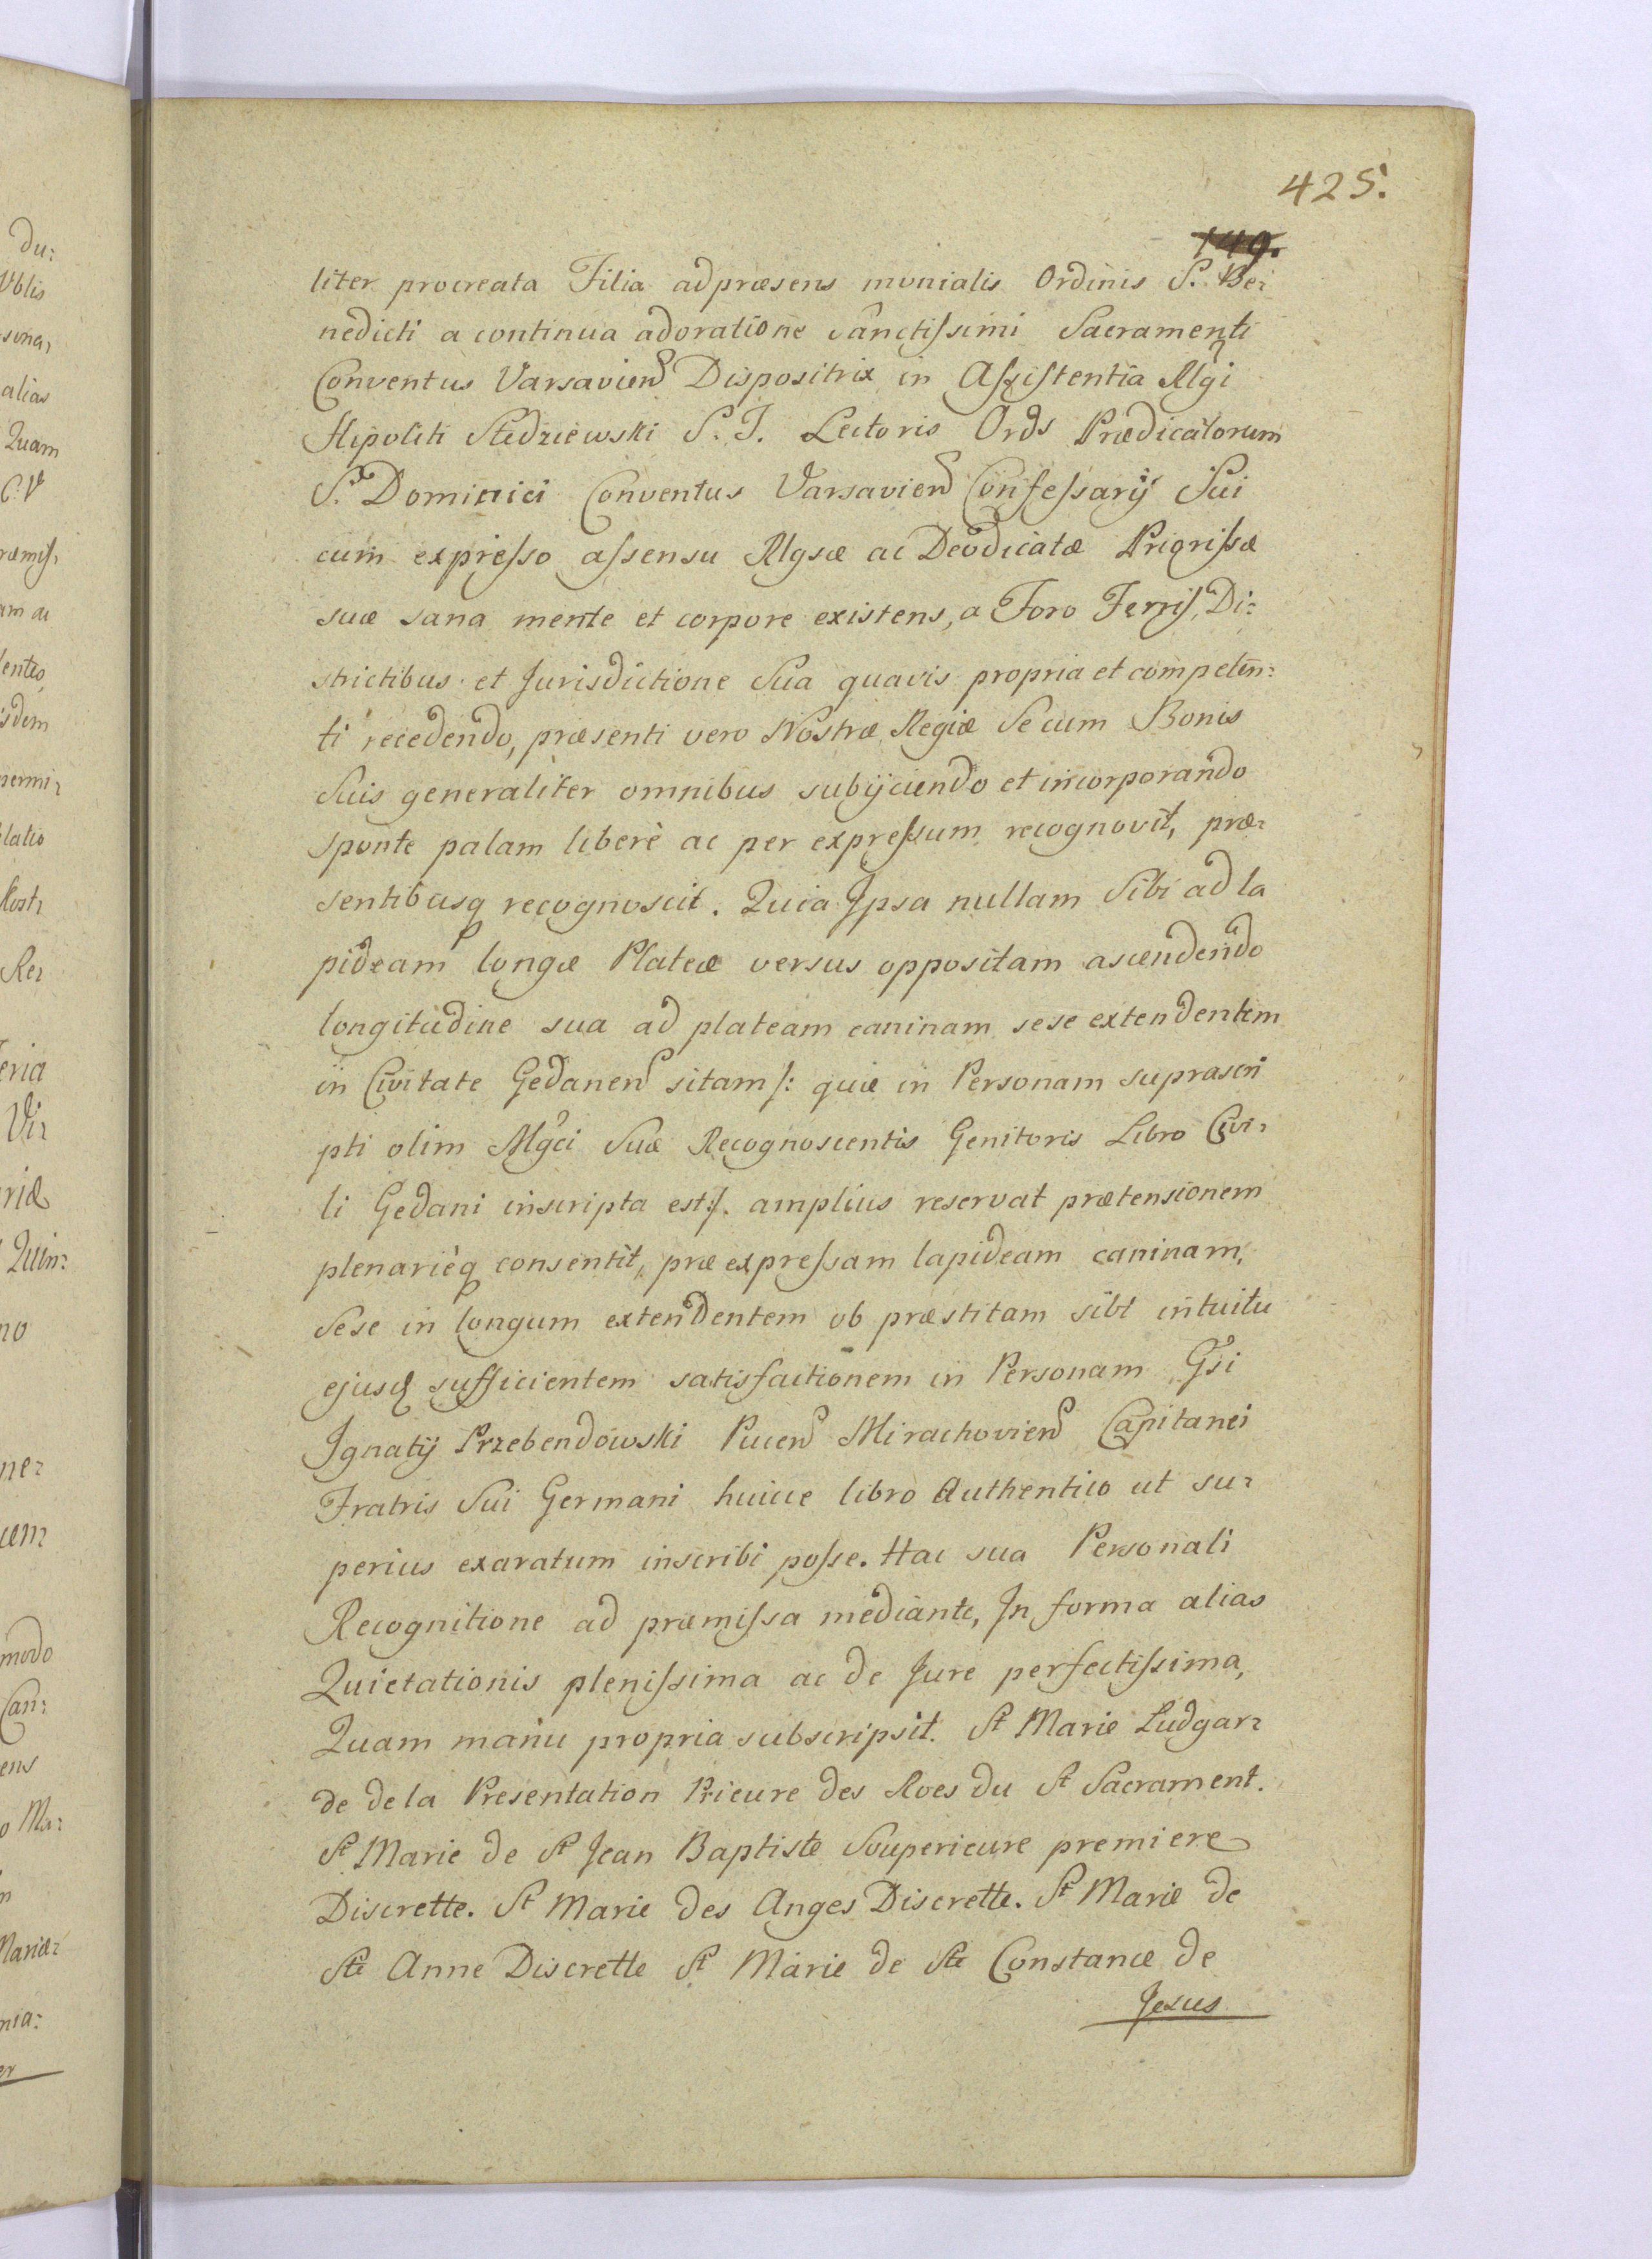 425.
149.
liter procreata Filia adpræsens monialis Ordinis S. Be-
nedicti a continua adoratione Sanctissimi Sacramenti
Conventus Varsavien Dispositrix in Assistentia Rlgi
Hipoliti Sledziewski S. T. Lectoris Ords Prædicatorum
S. Dominici Conventus Varsavien Confessarij Sui
cum expresso assensu Rlgsæ ac Deodicatæ Priorissæ
suæ sana mente et corpore existens, a Foro Terris, Di:
strictibus et Jurisdictione Sua quavis propria et competen:
ti recedendo, præsenti vero Nostræ Regiæ Se cum Bonis
Suis generaliter omnibus subijciendo et incorporando
sponte palam liberè ac per expressum recognovit, præ-
sentibusq recognoscit. Quia Ipsa nullam Sibi ad la
pideam longæ Plateæ versus oppositam ascendendo
longitudine sua ad plateam caninam sese extendentem
in Civitate Gedanen sitam /: quæ in Personam suprascri
pti olim Mgci Suæ Recognoscentis Genitoris Libro Civi-
li Gedani inscripta est :/. amplius reservat prætensionem
plenarièq consentit, præexpressam lapideam caninam,
Sese in longum extendentem ob præstitam sibi intuitu
ejusq sufficientem satisfactionem in Personam Gsi
Ignatij Przebendowski Pucen Mirachovien Capitanei
Fratris Sui Germani huicce libro Authentico ut su-
perius exaratum inscribi posse. Hac sua Personali
Recognitione ad præmissa mediante, In forma alias
Quietationis plenissima ac de Jure perfectissima,
Quam manu propria subscripsit. Sr Marie Ludgar-
de de la Presentation Prieure des Roes du St Sacrament.
Sr Marie de St Jean Baptiste Souperieure premiere
Discrette. Sr Marie des Anges Discrette. Sr Marie de
Ste Anne Discrette Sr Marie de Ste Constance de
Jesus